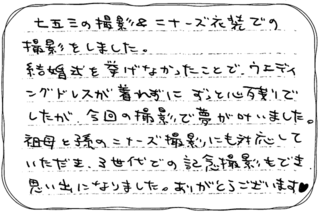 七五三の撮影&ニナーズ衣装での
撮影をしました。
結婚式を挙げなかったことで、ウエディ
ングドレスが着れずに ずっと心残りで
したが、今回の撮影で夢が叶いました。
祖母と孫のニナーズ撮影にも対応して
いただき、3世代での記念撮影もでき
思い出になりました。ありがとうございます♥